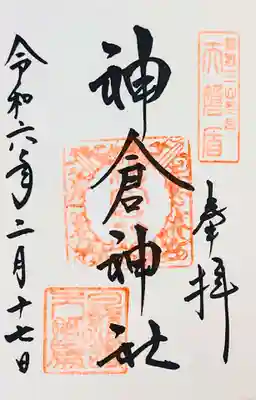 奉拝
天磐盾
神倉神社
令和六年二月十七日